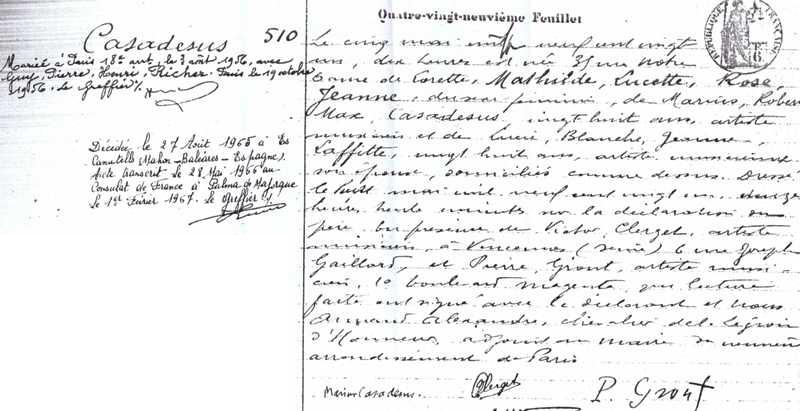 Quatre-vingt-neuvième Feuillet
RÉPUBLIQUE FRANÇAISE
Casadesus
510
Marié à Paris 18e arrt, le 3 août 1956, avec
Guy, Pierre, Henri, Richez. Paris le 19 octobre
1956. Le Greffier
Décédée le 27 Août 1965 à Es
Canutells (Mahon-Baléares-Espagne).
Acte transcrit le 28 Mai 1966 au
Consulat de France à Palma de Majorque
Le 1er Février 1967. Le Greffier
Le cinq mai mil neuf cent vingt
un, dix heures est née 37 rue Notre
Dame de Lorette, Mathilde, Lucette, Rose
Jeanne, du sexe féminin, de Marius, Robert
Max, Casadesus, vingt huit ans, artiste
musicien et de Lucie, Blanche, Jeanne,
Laffitte, vingt huit ans, artiste musicienne
son épouse, domiciliés comme dessus. Dressé
le huit mai mil neuf cent vingt un,
heures trente minutes sur la déclaration du
père en présence de Victor, Clerget, artiste
musicien, à Vincennes (Seine) 6 rue Joseph
Gaillard, et Pierre, Grout, artiste musi-
cien, 10 boulevard Magenta, qui lecture
faite ont signé avec le déclarant et Nous
Alexandre, chevalier de la Légion
d'Honneur, adjoint au maire du neuvième
arrondissement de Paris
Marius Casadesus.
Clerget
P. Grout